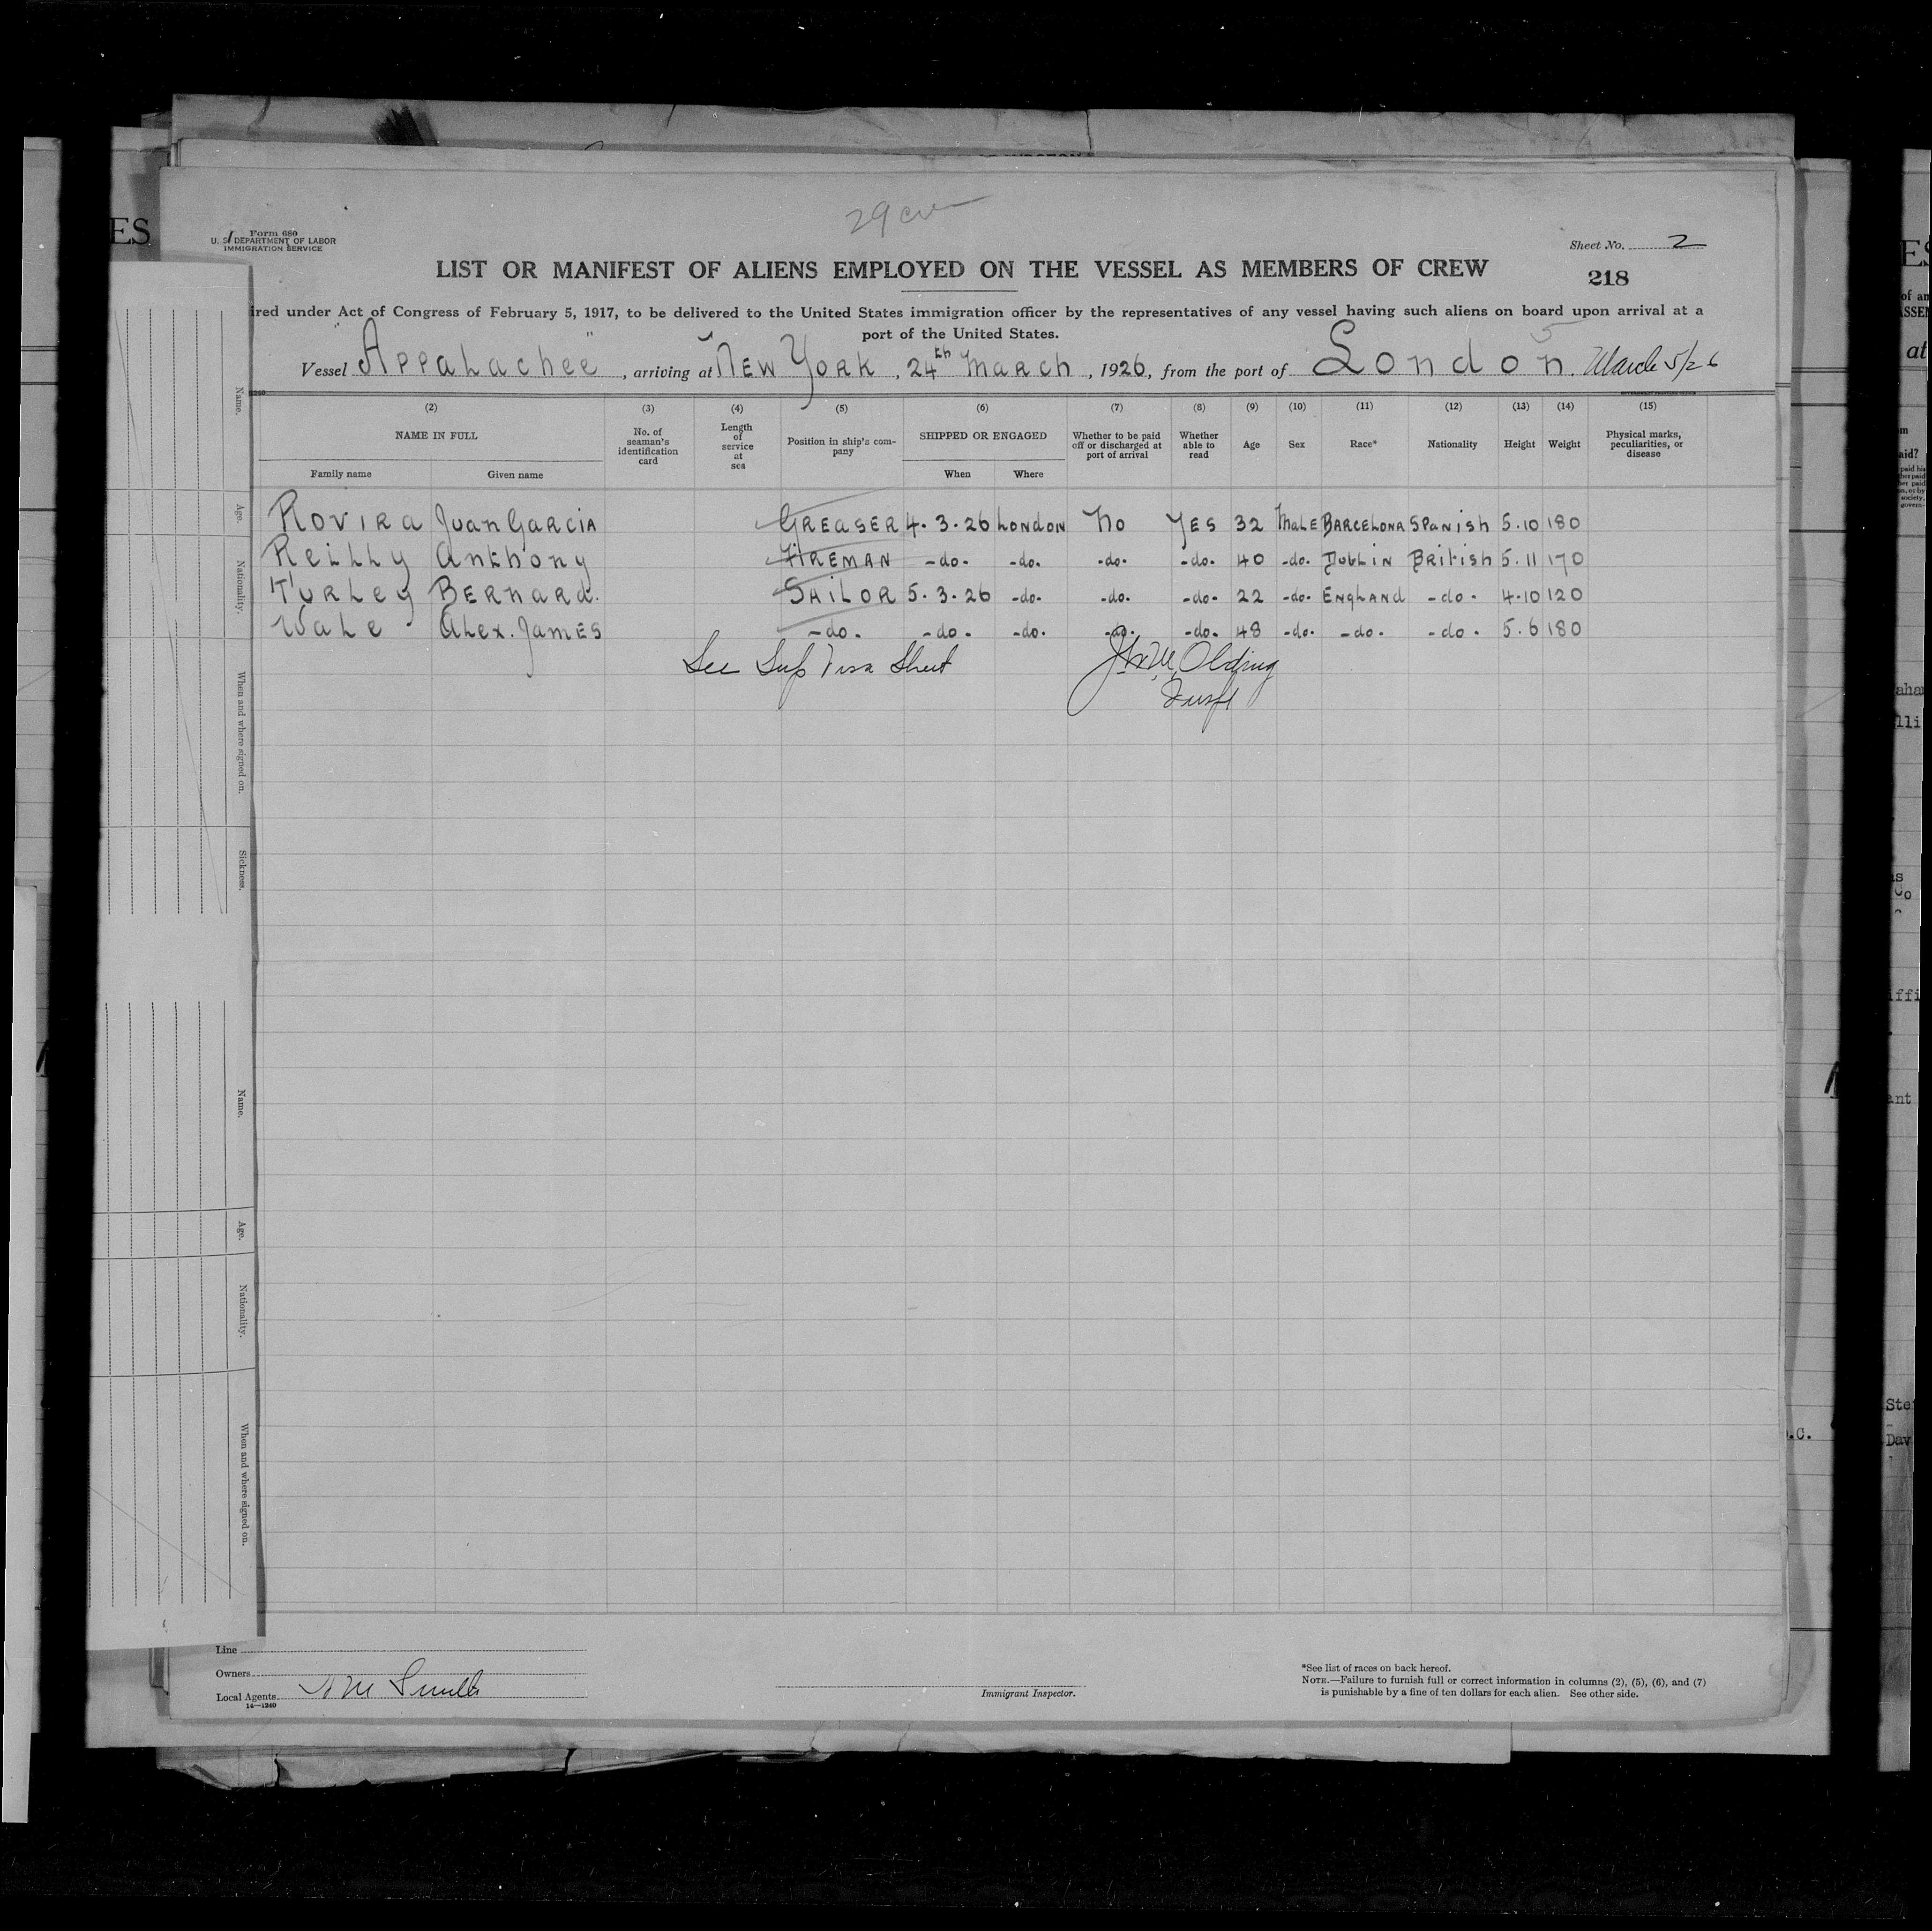 29 crew
Form 680
U. S. DEPARTMENT OF LABOR
IMMIGRATION SERVICE
Sheet No. 2
LIST OR MANIFEST OF ALIENS EMPLOYED ON THE VESSEL AS MEMBERS OF CREW
218
ired under Act of Congress of February 5, 1917, to be delivered to the United States immigration officer by the representatives of any vessel having such aliens on board upon arrival at a
port of the United States.
Vessel "Appalachee", arriving at New York, 24th March, 1926, from the port of London. March 5/26
(2) (3) (4) (5) (6) (7) (8) (9) (10) (11) (12) (13) (14) (15)
NAME IN FULL No. of seaman's identification card Length of service at sea Position in ship's company SHIPPED OR ENGAGED Whether to be paid off or discharged at port of arrival Whether able to read Age Sex Race* Nationality Height Weight Physical marks, peculiarities, or disease
Family name Given name When Where
Rovira Juan Garcia Greaser 4.3.26 London No Yes 32 Male Barcelona Spanish 5.10 180
Reilly Anthony Fireman -do- -do- -do- -do- 40 -do- Dublin British 5.11 170
Turley Bernard. Sailor 5.3.26 -do- -do- -do- 22 -do- England -do- 4.10 120
Wale Alex. James -do- -do- -do- -do- -do- 48 -do- -do- -do- 5.6 180
See Sup Visa Sheet Olding
Insp
Name.
Age.
Nationality.
When and where signed on.
Sickness.
Name.
Age.
Nationality.
When and where signed on.
Line
Owners
Local Agents
14—1240
Immigrant Inspector.
*See list of races on back hereof.
NOTE.—Failure to furnish full or correct information in columns (2), (5), (6), and (7)
is punishable by a fine of ten dollars for each alien. See other side.